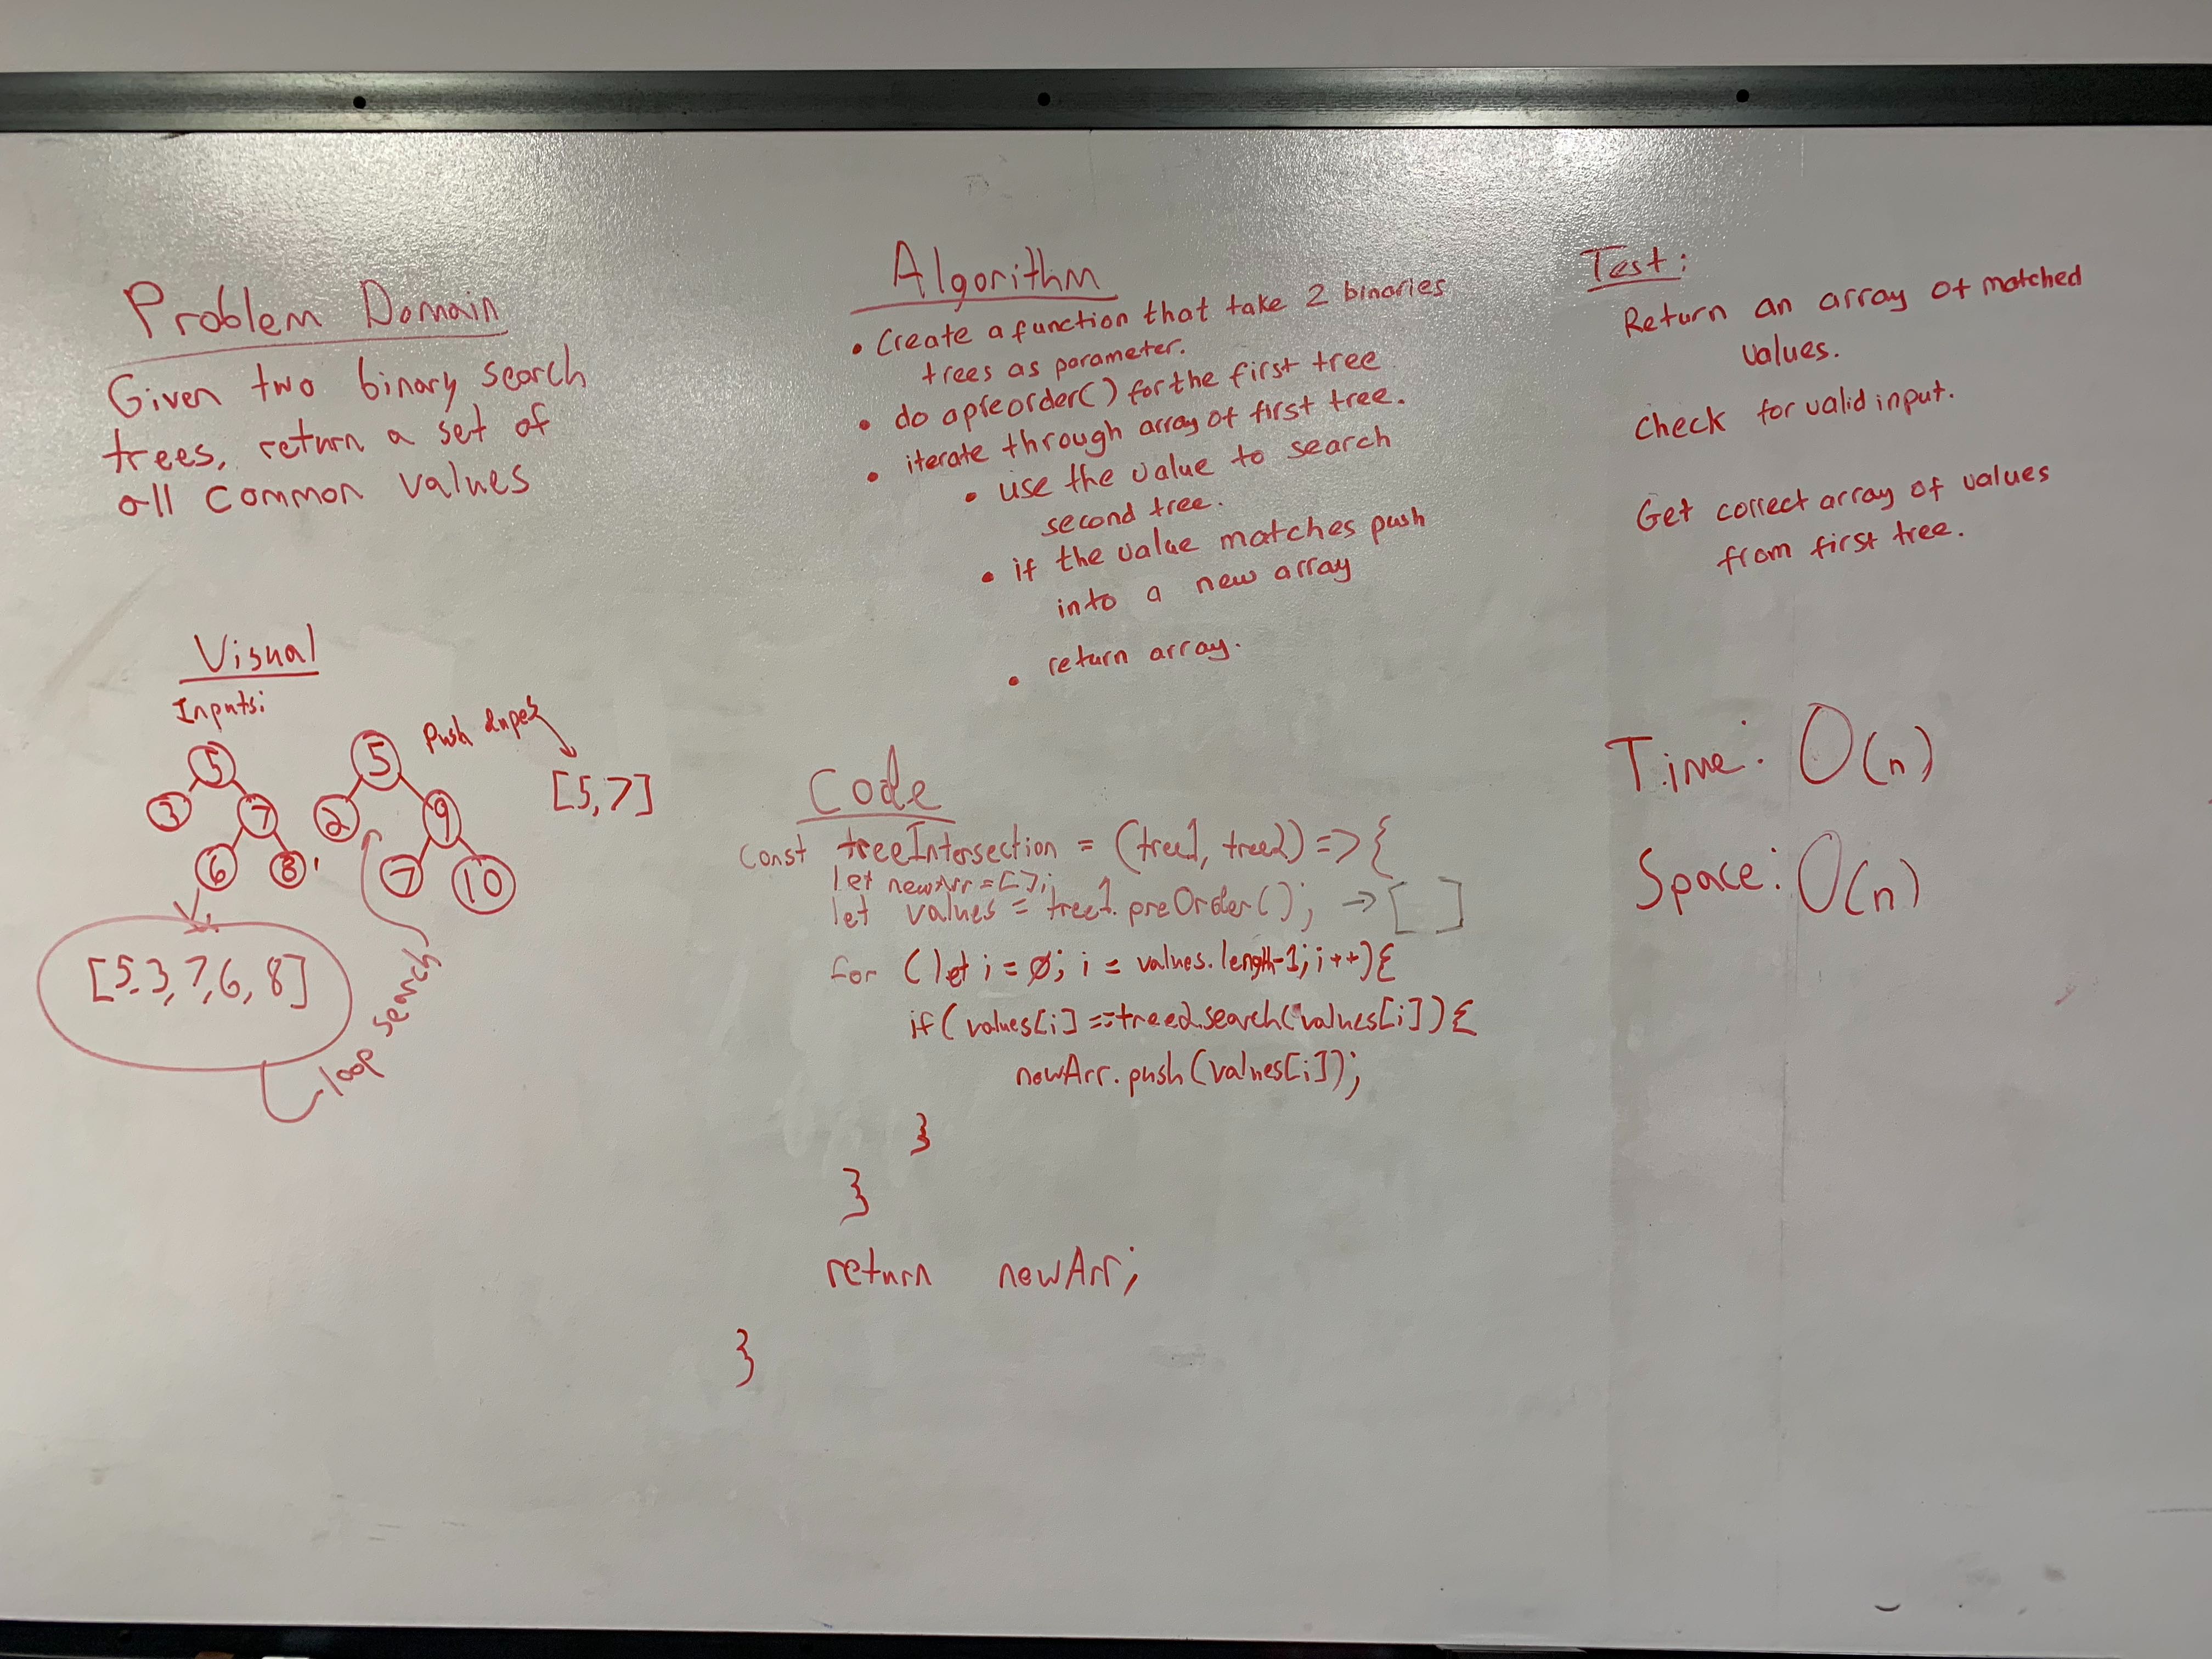 Problem Domain
Given two binary search
trees, return a set of
all common values
Visual
Inputs:
5
3
7
6
8
5
2
9
7
10
Push dupes
[5,7]
[5,3,7,6,8]
loop search
Algorithm
• Create a function that take 2 binaries
trees as parameter.
• do a preorder() for the first tree
• iterate through array of first tree.
• use the value to search
second tree.
• if the value matches push
into a new array
• return array.
Code
const treeIntersection = (tree1, tree2) => {
let newArr = [];
let values = tree1.preOrder(); → [ ]
for (let i = 0; i = values.length-1; i++){
if (values[i] === tree2.search(values[i]) {
newArr.push(values[i]);
}
}
return newArr;
}
Test:
Return an array of matched
values.
check for valid input.
Get correct array of values
from first tree.
Time: O(n)
Space: O(n)